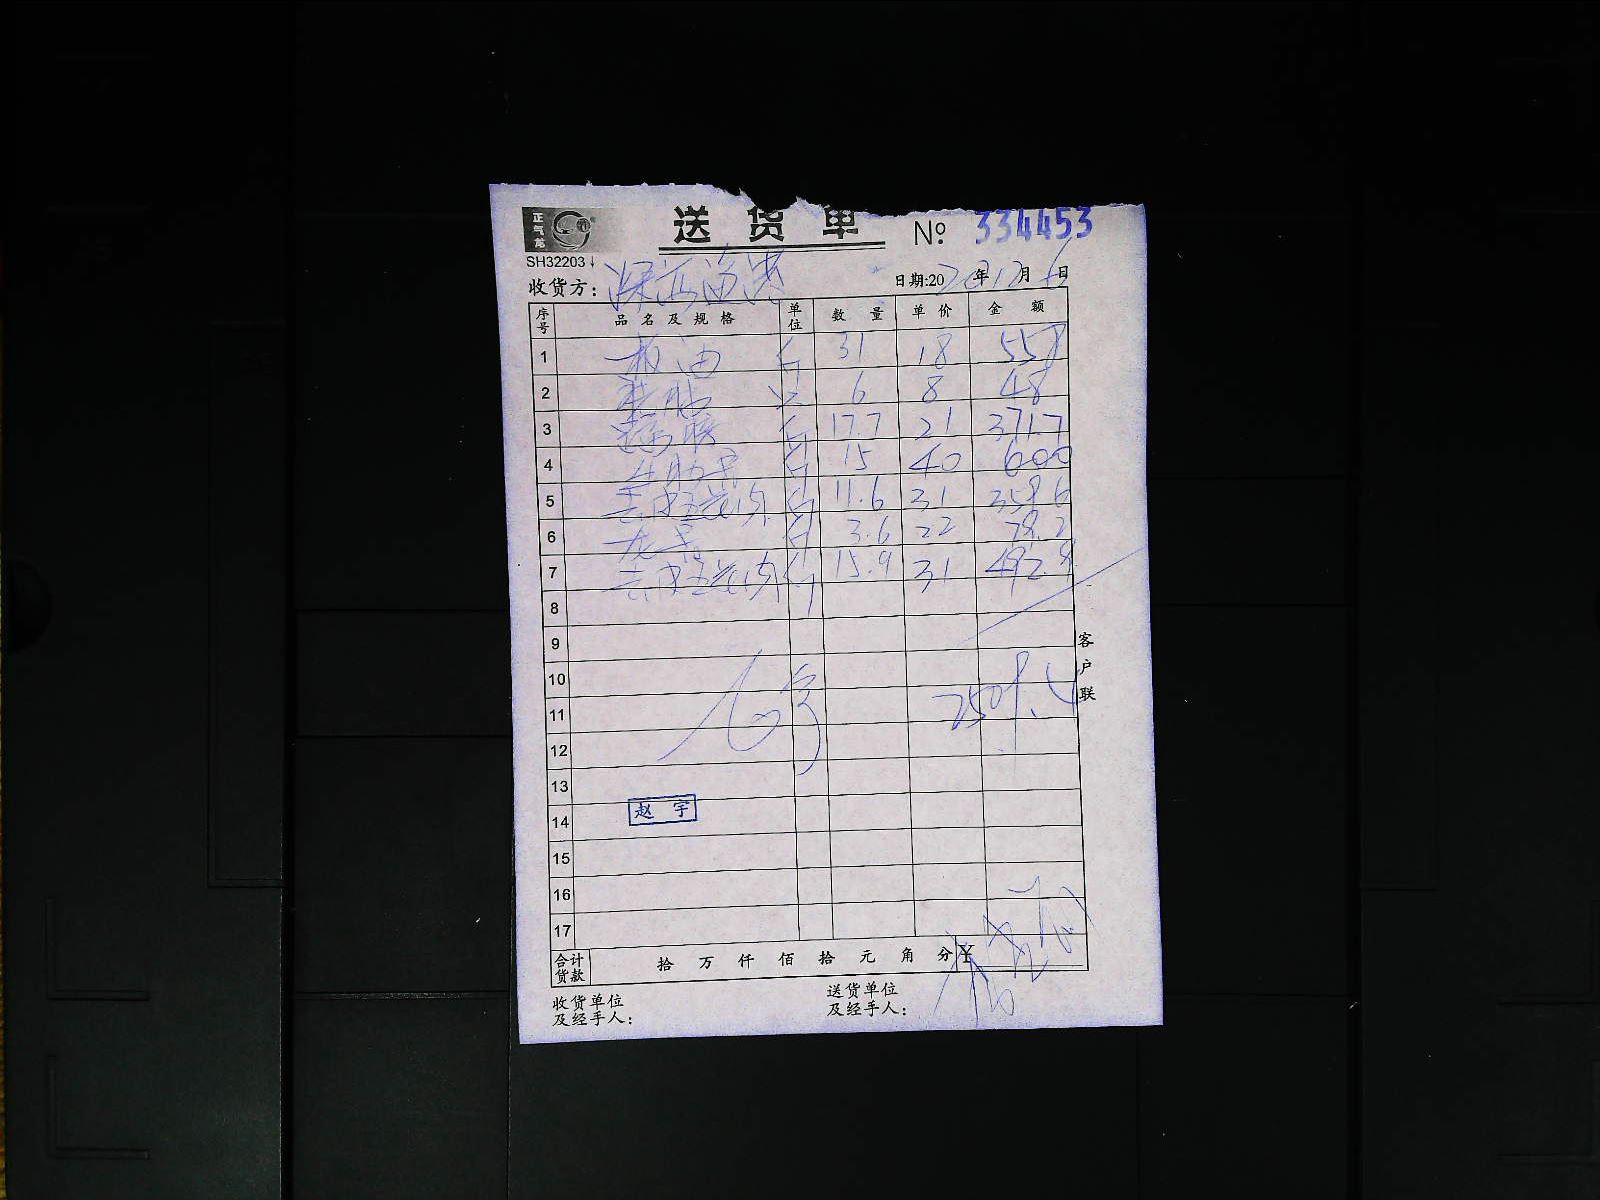 正气龙
送货单 No 334453
SH32203
收货方: 日期:2020年12月6日
序号 品名及规格 单位 数量 单价 金额
1 板油 斤 31 18 558
2 只 6 8 48
3 斤 17.7 21 371.7
4 斤 15 40 600
5 去皮五花肉 斤 11.6 31 359.6
6 龙骨 斤 3.6 22 79.2
7 去皮五花肉 斤 15.9 31 492.9
8
9
10
11 2509.4
12
13
14 赵宇
15
16
17
合计货款 拾 万 仟 佰 拾 元 角 分 ¥
收货单位及经手人:
送货单位及经手人:
客户联